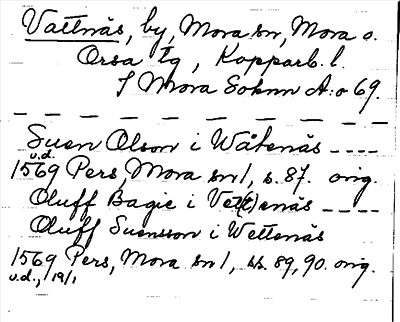 Vattnäs, by, Mora sn, Mora o.
Orsa tg, Kopparb. l.
I Mora Soknn A:o 69.
Suen Olson i Wåtenäs ----
u.d.
1569 Pers, Mora sn 1, s. 87. orig.
Oluff Bagie i Vett(e)enäs ----
Oluff Suensson i Wettenäs
1569 Pers, Mora sn 1, ss. 89, 90. orig.
u.d., 19/1